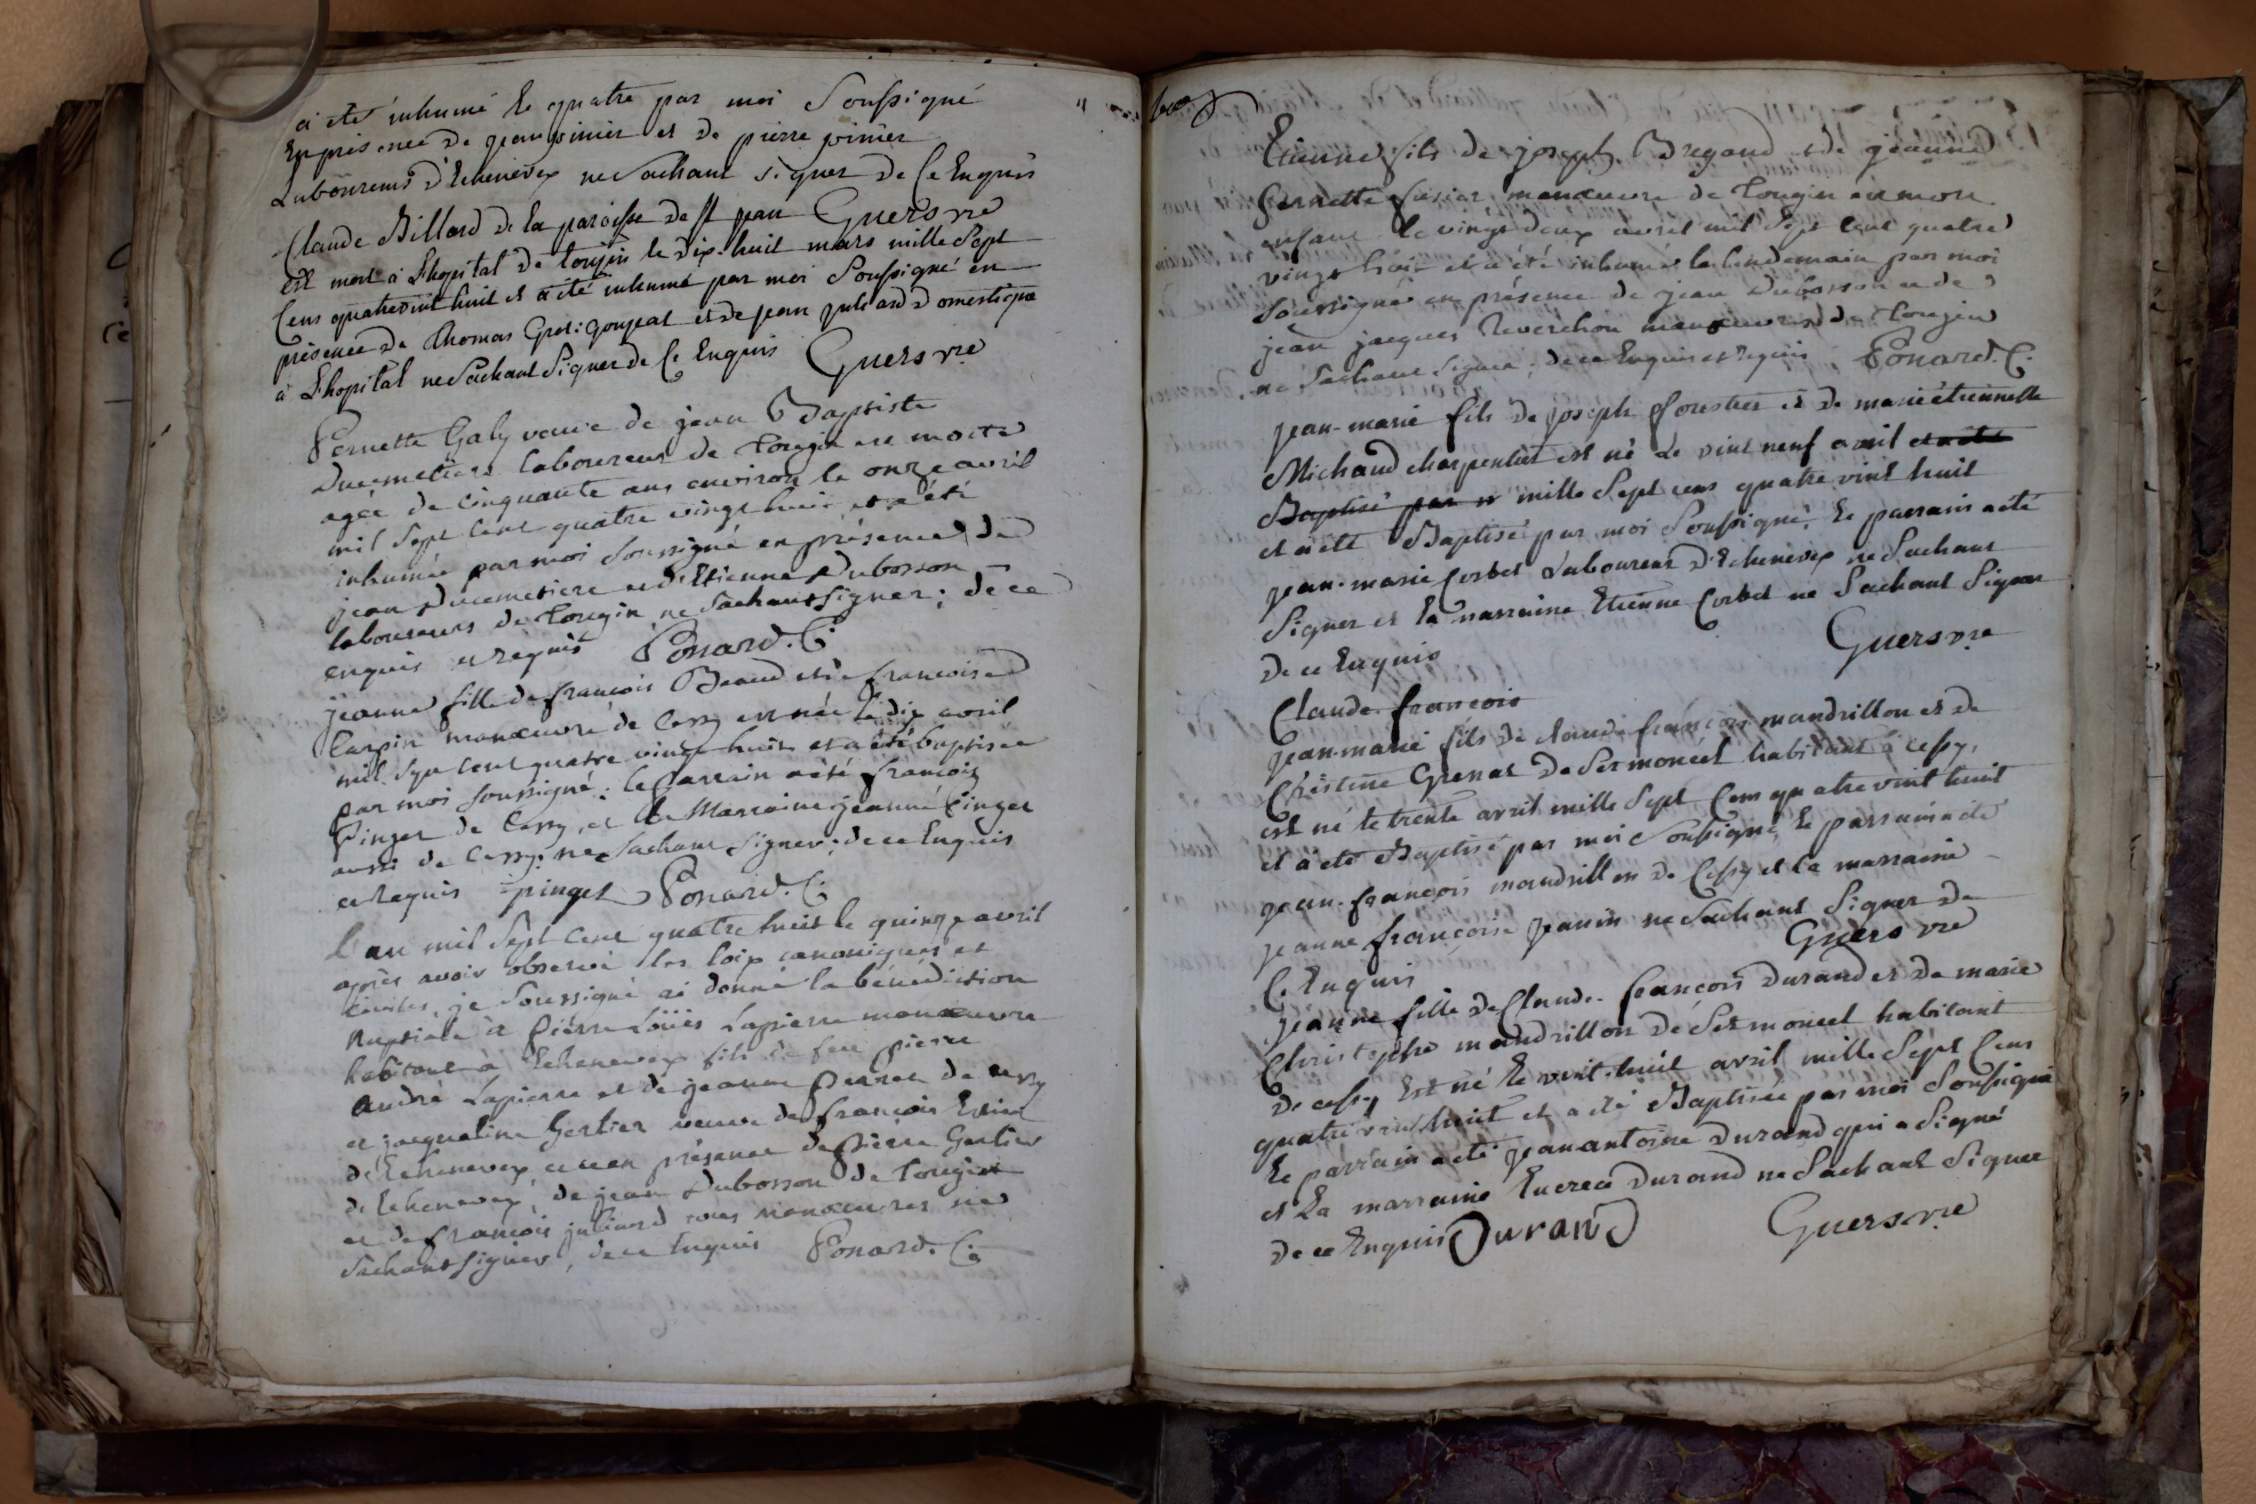 a été inhumé le quatre par moi Soussigné
En présence de jean vinier et de pierre vinier
Laboureurs d'Echenevex ne Sachant signer de Ce Enquis
Claude Billard de la paroisse de St jean Guers vre
est mort à L'hopital de tougin le dix-huit mars mille Sept
Cens quatrevint huit et a été inhumé par moi Soussigné en
présence de Thomas Gros: goujeat et de jean juliard domestique
à L'hopital ne Sachant Signer de Ce Enquis Guers vre
Pernette Galy veuve de jean Baptiste
Ducimetiere laboureur de tougin est morte
agée de cinquante ans environ le onze avril
mil Sept Cent quatre vingt huit et a été
inhumée par moi Soussigné en présence de
jean Ducimetiere et d'Etienne Dubosson
laboureurs de tougin ne Sachant signer; de ce
enquis et requis Ponard. C.
jeanne fille de françois Beaud et de françoise
Carpin manœuvre de Cessy est née le dix avril
mil sept cent quatre vingt huit et a été baptisée
par moi soussigné; le Parrain a été françois
Pinget de Cessy, et la Marraine jeanne Pinget
aussi de Cessy; ne Sachant signer; de ce Enquis
et Requis pinget Ponard. C.
L'an mil Sept Cent quatre huit le quinze avril
après avoir observé les loix canoniques et
Civiles, je Soussigné ai donné la bénédiction
Nuptiale à Pierre Loüis Lapierre manœuvre
habitant à Echenevex fils de feu pierre
André Lapierre et de jeanne Perret de Cessy
et jacqueline Gertier veuve de françois
d'Echenevex et ce en présence de Pierre Gertier
d'Echenevex, de jean Dubosson de tougin
et de françois juliard tous manœuvres ne
Sachant signer, de ce Enquis Ponard. C.
Etienne fils de joseph Bregand et de jeanne
Pernette manœuvre de tougin est mort
enfant le vingt deux avril mil Sept Cent quatre
vingt huit et a été inhumé le lendemain par moi
Soussigné en présence de jean Dubosson et de
jean jacques Reverchon manœuvres de tougin
ne Sachant signer; de ce Enquis et requis Ponard. C.
jean-marie fils de joseph forestier et de marie étiennette
Michaud charpentier est né Le vint neuf avril et a été
Baptisé par m mille Sept cens quatre vint huit
et a été Baptisé par moi Soussigné, Le parrain a été
jean-marie Corbet Laboureur D'Echenevex ne Sachant
Signer et la marraine Etienne Corbet ne Sachant Signer
De ce Enquis Guers vre
Claude françois
jean-marie fils de claude françois mandrillon et de
Christine Grenat De Sermoncel habitant à cessy,
est né le trente avril mille Sept Cens quatre vint huit
et a été Baptisé par moi Soussigné, Le parrain a été
jean-françois mandrillon de Cessy et La marraine
jeanne françoise janin ne Sachant Signer De
Ce Enquis Guers vre
jeanne fille de Claude-françois Durand et De marie
Christophe mandrillon de Sermoncel habitant
De cessy Est né le vint-huit avril mille Sept Cens
quatre vint huit et a été Baptisée par moi Soussigné
Le parrain a été jean antoine Durand qui a Signé
et La marraine Lucrece Durand ne Sachant Signer
De ce Enquis Durand Guers vre